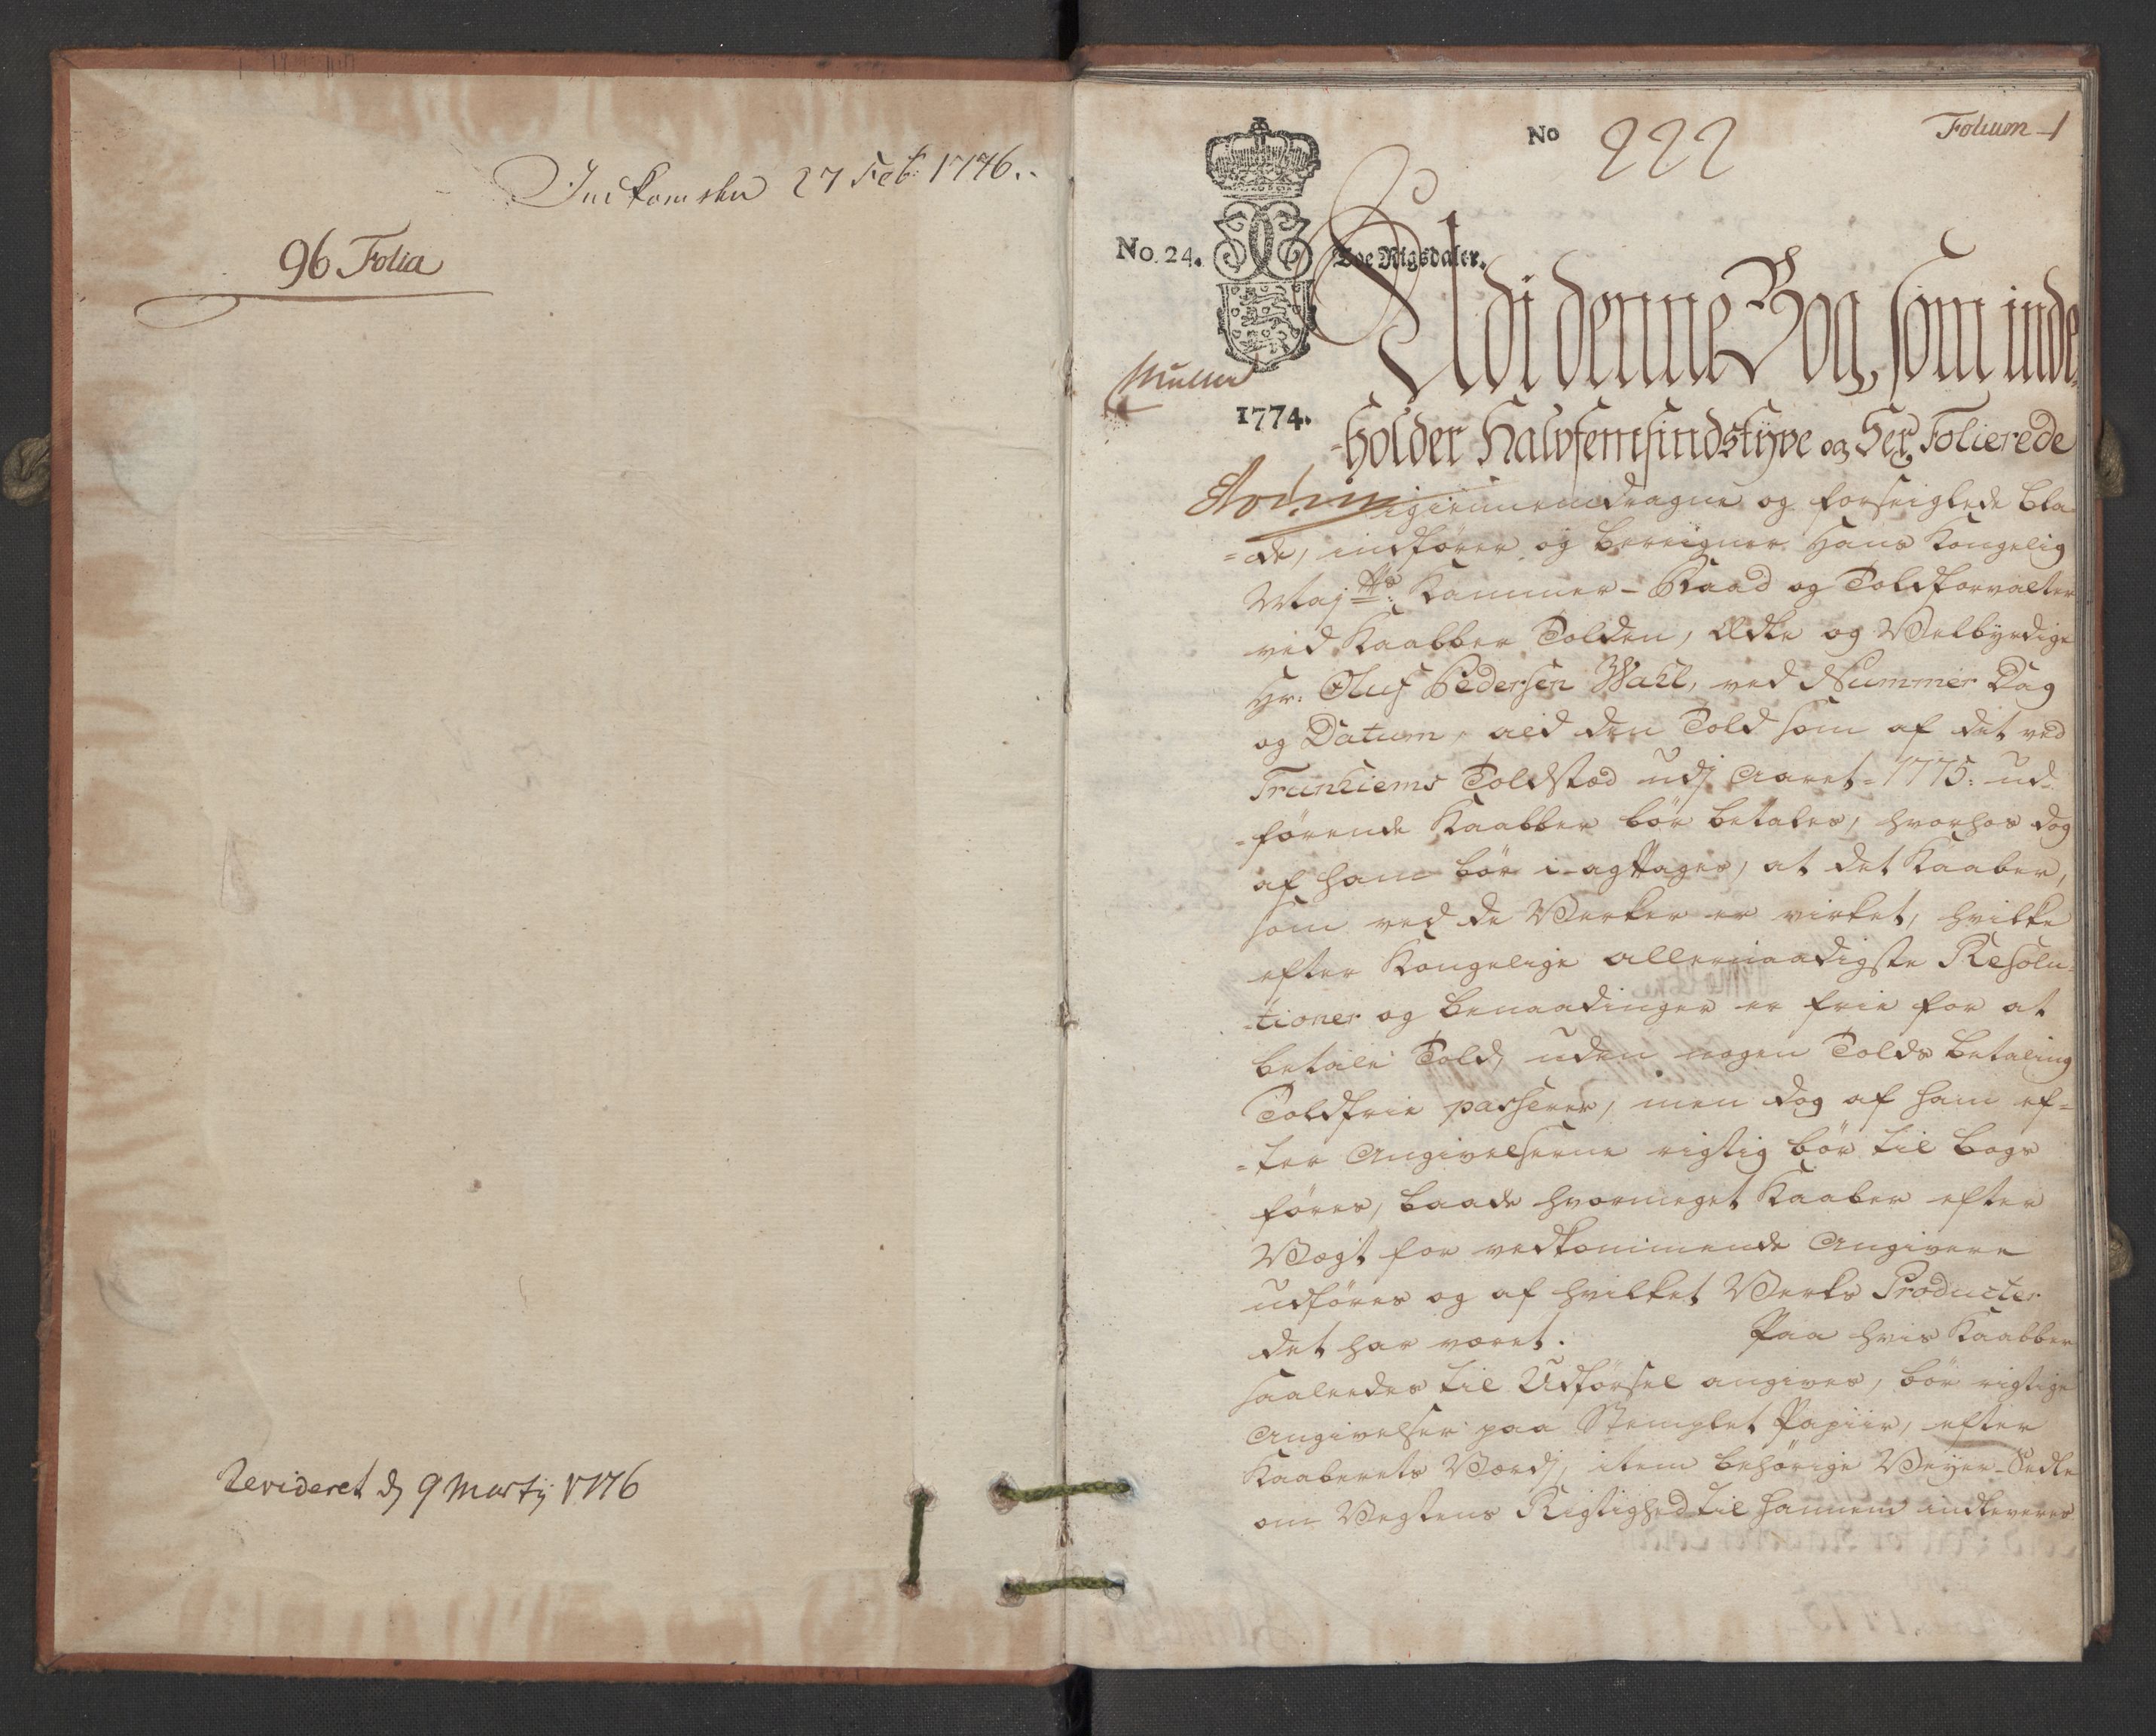 Indkomsten 27 Feb: 1776.
96 Folia
Revideret dj 9 Martij 1776
No 222
Folium 1
No. 24. Toe Rigsdaler.
Müller
1774.
Udi denne Bog, som inde-
-holder Halvfemsindstyve og Sex Folierede
igiennemdragne og forseiglede Bla
-de, indfører og beregner Hans Kongelig
Majts: Kammer-Raad og Toldforvalter
ved Kaabber Tolden, Ædle og Velbyrdige
Hr: Oluf Pedersen Wahl, ved Nummer Dag
og Datum, ald den Told som af det ved
Trunhiems Toldsted udj Aaret 1775: ud-
-førende Kaabber bør betales, hvorhos dog
af ham bør i agttages, at det Kaaber,
som ved de Verker er virket, hvilke
efter Kongelige allernaadigste Resolu-
-tioner og benaadinger er frie for at
betale Told, uden nogen Tolds betaling
Toldfrie passerer, men dog af ham ef-
-ter Angivelserne rigtig bør til bogs
føres, baade hvormeget Kaaber efter
Vægt for vedkommende Angivere
udføres og af hvilket Verks Producter
det har været. Paa hvis Kaabber
saaledes til Udførsel angives, bør rigtige
Angivelser paa Stemplet Papiir, efter
Kaaberets Værdj, item behørige Veyer-Sedle
om Vegtens Rigtighed til hannem indleveres